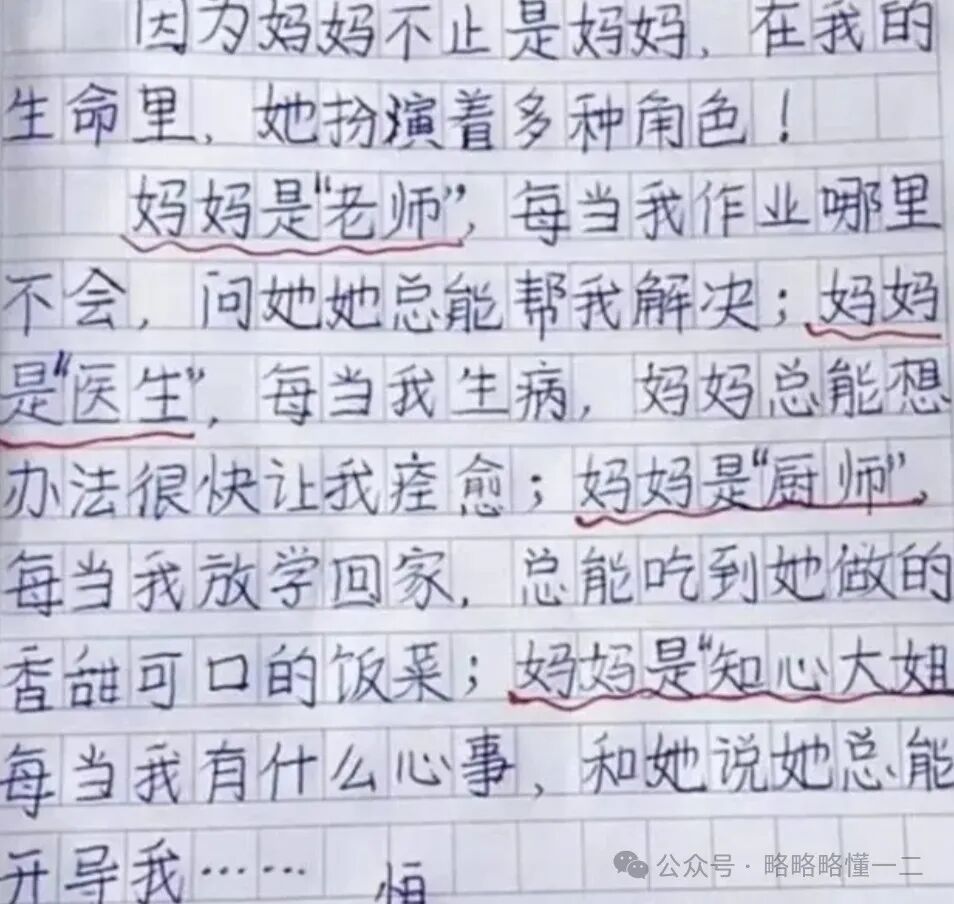 因为妈妈不止是妈妈，在我的
生命里，她扮演着多种角色！
妈妈是“老师”，每当我作业哪里
不会，问她她总能帮我解决；妈妈
是“医生”，每当我生病，妈妈总能想
办法很快让我痊愈；妈妈是“厨师”，
每当我放学回家，总能吃到她做的
香甜可口的饭菜；妈妈是“知心大姐
每当我有什么心事，和她说她总能
开导我……
公众号·略略略懂一二